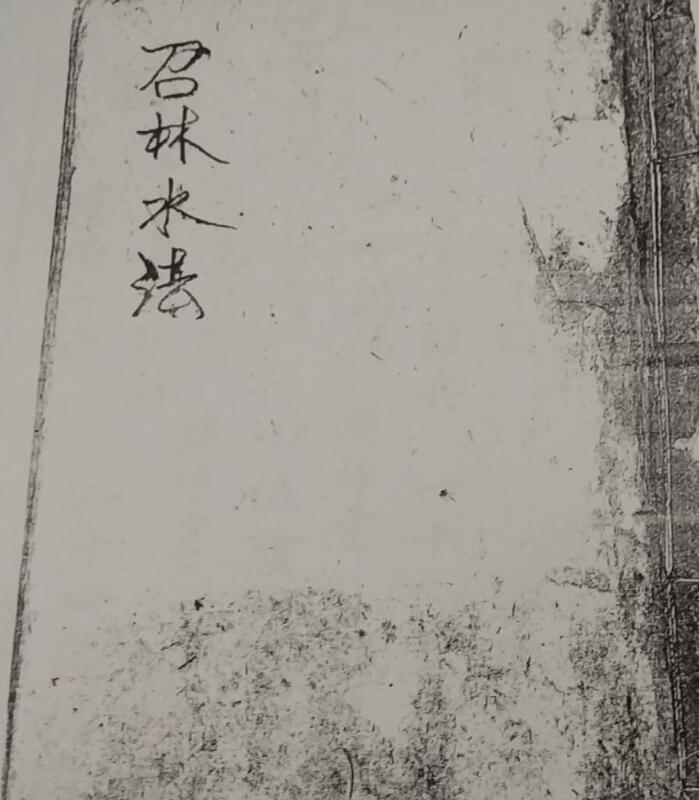 召林水法